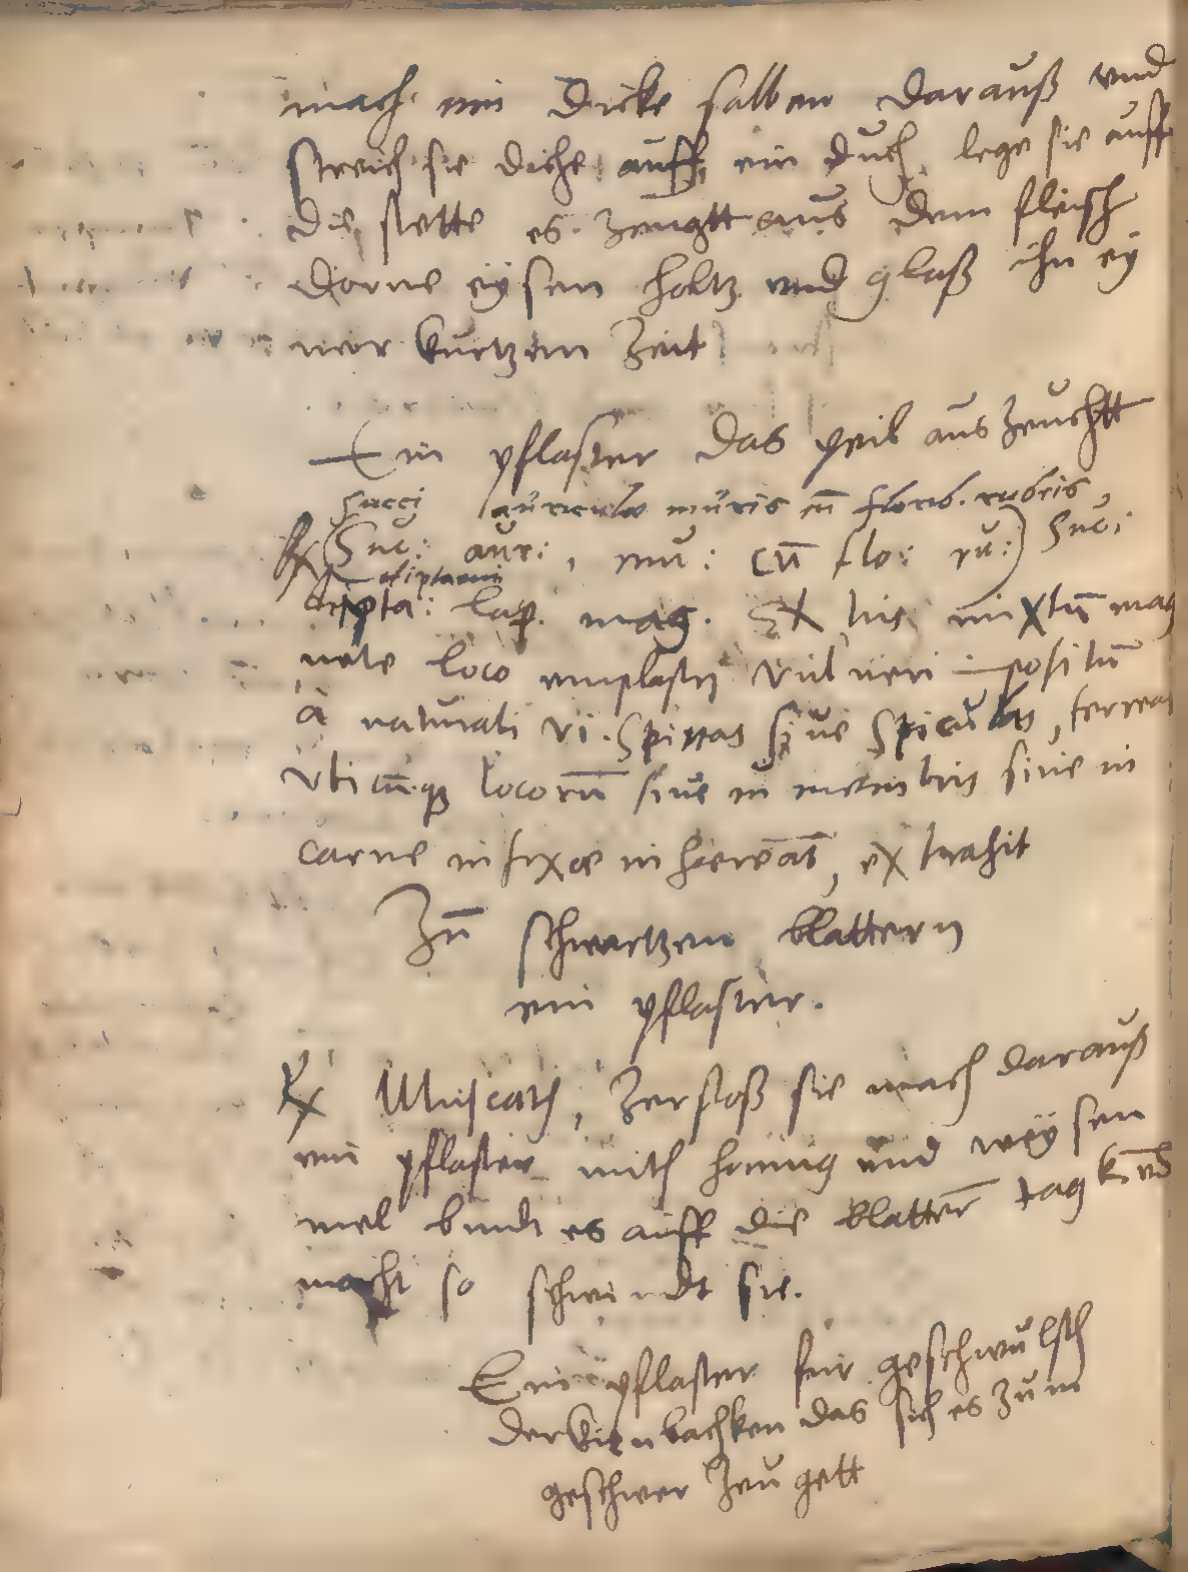 mach ein dicke salben darauß vnd
streich sie dicke auff ein duch, lege sie auff
die stette es zeugtt aus dem fleisch
dorne eÿsen holtz vnd glaß ihn eÿ
ner kurtzem zeit
Ein pflaster das pfeil aus zeuchtt
Succj auriculæ muris cū florib. rubris,
℞ (Suc: aur:, mu: cū flo: ru:) Suc:
diptami
dipta: lap. mag. Ex his mixtū mag
nete loco emplastrj vulneri impositū
à naturali vi. Spinas siue Spiculas, ferreas
vbicūq locorū siue in membris siue in
carne infixæ inhæreāt, extrahit
Zū schwartzen blattern
ein pflaster.
℞ Muscath, zerstoß sie mach darauß
ein pflaster mith honnig vnd weÿsen
mel bindt es auff die blatter tag vnd
nacht so schwindt sie.
Ein pflaster fur geschwulsth
der kinbacken das sich es zum
geschwer zeugett